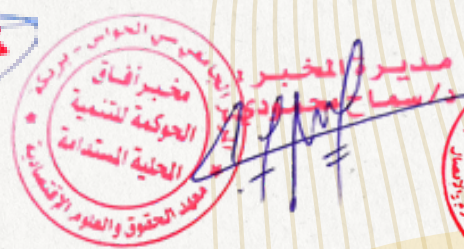 الجامعي سي الحواس - بريكة
مخبر آفاق
الحوكمة للتنمية
المحلية المستدامة
معهد الحقوق والعلوم الاقتصادية
مديرة المخبر
د/سماح محمودي